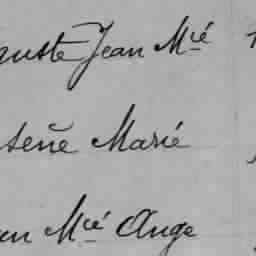 guste Jean Mié
sene Marié
an Mié Ange